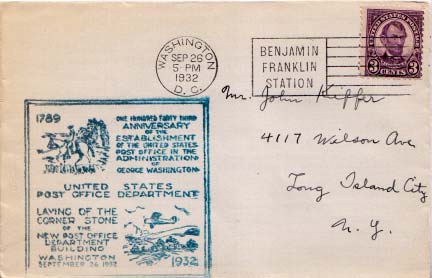 WASHINGTON
SEP 26
5-PM
1932
D.C.
BENJAMIN
FRANKLIN
STATION
3 CENTS 3
Mr. John Kiffer
4117 Wilson Ave
Long Island City
N. Y.
1789
ONE HUNDRED FORTY THIRD
ANNIVERSARY
OF THE
ESTABLISHMENT
OF THE UNITED STATES
POST OFFICE IN THE
ADMINISTRATION
OF
GEORGE WASHINGTON
UNITED STATES
POST OFFICE DEPARTMENT
LAYING OF THE
CORNER STONE
OF THE
NEW POST OFFICE
DEPARTMENT
BUILDING
WASHINGTON
SEPTEMBER 26 1932
1932